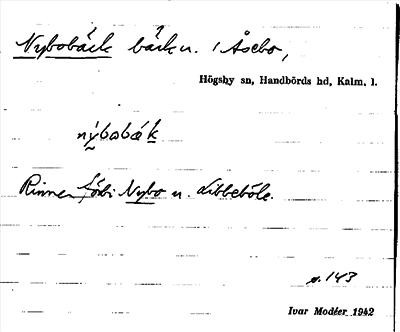 Nybobäck bäck n. i Åsebo,
Högsby sn, Handbörds hd, Kalm. l.
nybobäk
Rinner förbi Nybo n. Libbeböle.
s. 143
Ivar Modéer 1942